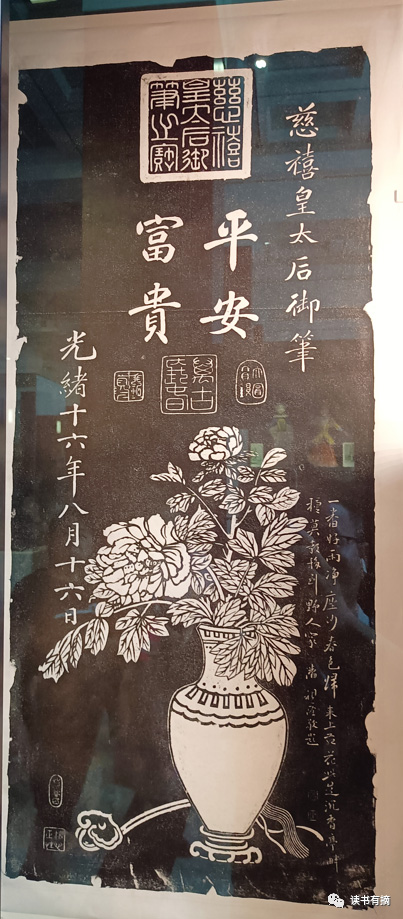 慈禧皇太后御筆
慈禧皇太后御筆之寶
平安
富貴
光緒十六年八月十六日
一番好雨淨塵沙春色歸來上苑花此是沉香亭畔
種莫教移到野人家
敬題
读书有摘